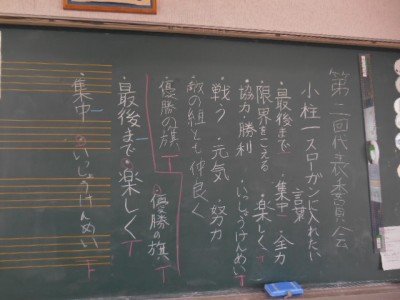 第二回代表委員会
小柱一スローガンに入れたい
言葉
・最後まで ・集中 ・全力
・限界をこえる ・楽しく T
・協力・勝利 ・いっしょうけんめい T
・戦う ・元気 ・努力
・敵の組とも仲良く
・優勝の旗 T
・優勝の旗 T
・最後まで楽しく T
・集中 一 ・いっしょうけんめい T